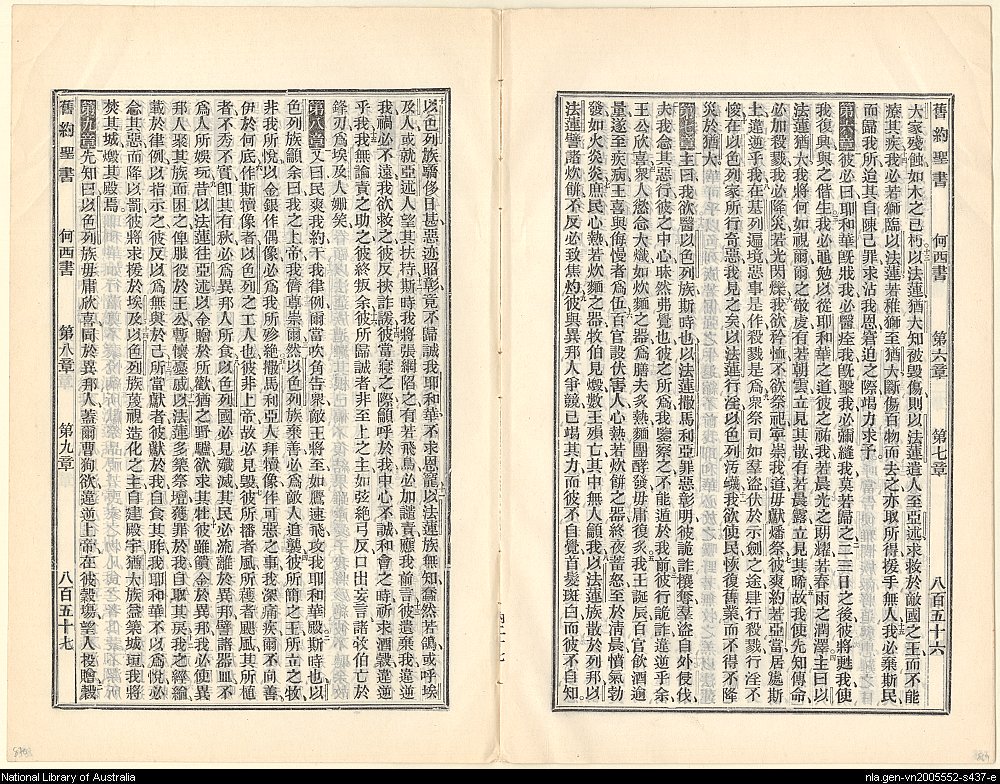 舊約聖書　何西書　第六章　第七章　八百五十六
大家殘蝕如木之已朽以法蓮猶大知被毀傷則以法蓮遣人至亞述求救於敵國之王而不能
療其疾我必若獅臨以法蓮若稚獅至猶大斷傷百物而去之亦取所得援手無人我必棄斯民
而歸我所迨其自陳己罪求沾我恩窘迫之際竭力求予
第六章彼必曰耶和華旣戕我必醫痊我旣擊我必彌縫我莫若歸之二三日之後彼將甦我使
我復興與之偕生我必黽勉以從耶和華之道彼之祐我若晨光之昉耀若春雨之潤澤主曰以
法蓮猶大我將何如視爾爾之敬虔有若朝雲立見其散有若晨露立見其晞故我使先知傳命
必加殺戮我必降災若光閃爍我欲矜恤不欲祭祀寧崇我道毋獻燔祭彼爽約若亞當居處斯
土違逆乎我在基列遍境惡事是作殺戮是爲衆祭司如羣盜伏於示劍之途肆行殺戮行淫不
悛在以色列家所行奇惡我見之矣以法蓮行淫以色列汚衊我欲使民恢復舊業而不得不降
災於猶大
第七章主曰我欲醫以色列族斯時也以法蓮撒馬利亞罪惡彰明彼詭詐攘奪羣盜自外侵伐
夫我念其惡行彼之中心昧然弗覺也彼之所爲我鑒察之不能遁於我前彼行詭詐逆乎余
王公欣喜衆人慾念大熾如炊麵之器爲膳夫炙熱麵團酵發毋庸復炙我王誕辰百官飲酒逾
量遂至疾病王喜與侮慢者爲伍百官設伏害人心熱若炊餅之器終夜蓄怒至於淸晨憤氣勃
發如火炎炎庶民心熱若炊麵之器牧伯見燬數王殞亡其中無人籲我以法蓮族散於列邦以
法蓮譬諸炊餅不反必致焦灼彼與異邦人爭競已竭其力而彼不自覺首髮斑白而彼不自知
以色列族驕侈日甚惡迹昭彰竟不歸誠我耶和華不求恩寵以法蓮族無知蠢然若鴿或呼埃
及人或就亞述人望其扶持斯時我將張網陷之有若飛鳥必加譴責應我前言彼遺棄我違逆
我禍必不遠我欲救之彼反挾詐誑彼當寢之際籲呼於我中心不誠和會之時祈求酒穀違逆
乎我我無論責之助之彼終叛余彼所歸誠者非至上之主如弦絕弓反口出妄言諸牧伯亡於
鋒刃爲埃及人姍笑
第八章又曰民爽我約干我律例爾當吹角告衆敵王將至如鷹速飛攻我耶和華殿斯時也以
色列族籲余曰我之上帝我儕尊崇爾然以色列族棄善必爲敵人追襲彼所簡之王所立之牧
非我所悅以金銀作偶像必爲我所殄絕撒馬利亞人拜犢像作可惡之事我深痛疾爾不向善
伊於何底作斯犢像者以色列之工人也彼非上帝故必見毀彼所播者風所穫者颶風其所植
者不秀不實卽其有秋必爲異邦人所食以色列國必見殲滅其民必流離於異邦譬諸器皿不
爲人所娛玩昔以法蓮往亞述以金贈於所歡猶之野驢欲求其牡彼雖饋金於異邦我必使異
邦人聚其族而困之俾服役於王公暫懷憂戚以法蓮多築祭壇獲罪於我自取其戾我之經綸
載於律例以指示之彼反以爲無與於己所當獻者彼獻於我自食其胙我耶和華不以爲悅必
念其惡而降以罰彼將求援於埃及以色列族蔑視造化之主自建殿宇猶大族益築城垣我將
焚其城燬其殿焉
第九章先知曰以色列族毋庸欣喜同於異邦人蓋爾曹狥欲違逆上帝在彼穀場望人投贈穀
舊約聖書　何西書　第八章　第九章　八百五十七
National Library of Australia
nla.gen-vn2005552-s437-e